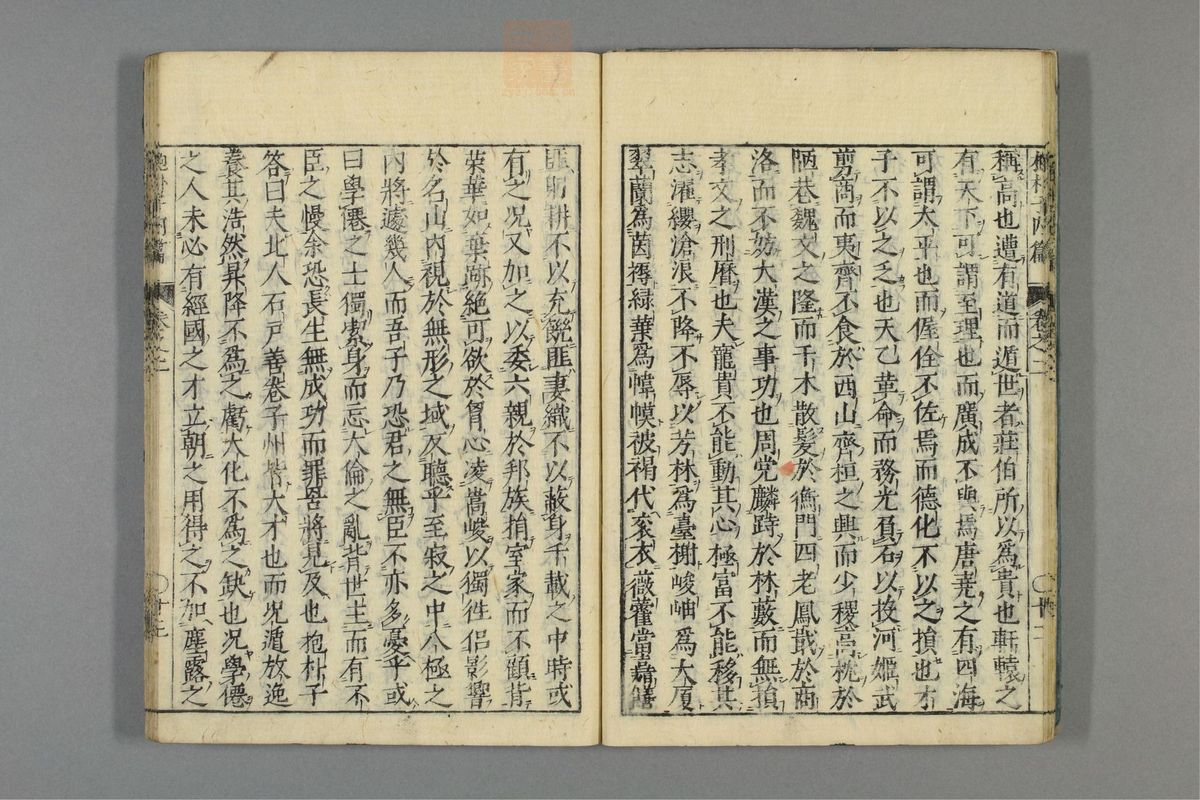 稱高也遭有道而遁世者莊伯所以爲貴也軒轅之
有天下可謂至理也而廣成不與焉唐堯之有四海
可謂太平也而偓佺不佐焉而德化不以之損也才
子不以之乏也天乙革命而務光負石以投河姬武
剪商而夷齊不食於西山齊桓之興而少稷高枕於
陋巷魏文之隆而干木散髮於衡門四老鳳戢於商
洛而不妨大漢之事功也周党麟跱於林藪而無損
孝文之刑曆也夫寵貴不能動其心極富不能移其
志濯纓滄浪不降不辱以芳林爲臺榭峻岫爲大厦
翠蘭爲茵褥緑葉爲幃幙被褐代衮衣薇藿當嘉膳
匪躬耕不以充饒匪妻織不以蔽身千載之中時或
有之况又加之以委六親於邦族捐室家而不顧背
榮華如棄跡絶可欲於胷心凌嵩峻以獨徃侶影響
於名山内視於無形之域反聽乎至寂之中八極之
内將遽幾人而吾子乃恐君之無臣不亦多憂乎或
曰學僊之士獨潔身而忘大倫之亂背世主而有不
臣之慢余恐長生無成功而罪吾將見及也抱朴子
答曰夫北人石戸善卷子州皆大才也而况遁放逸
養其浩然昇降不爲之虧大化不爲之缺也况學僊
之人未必有經國之才立朝之用得之不加塵露之